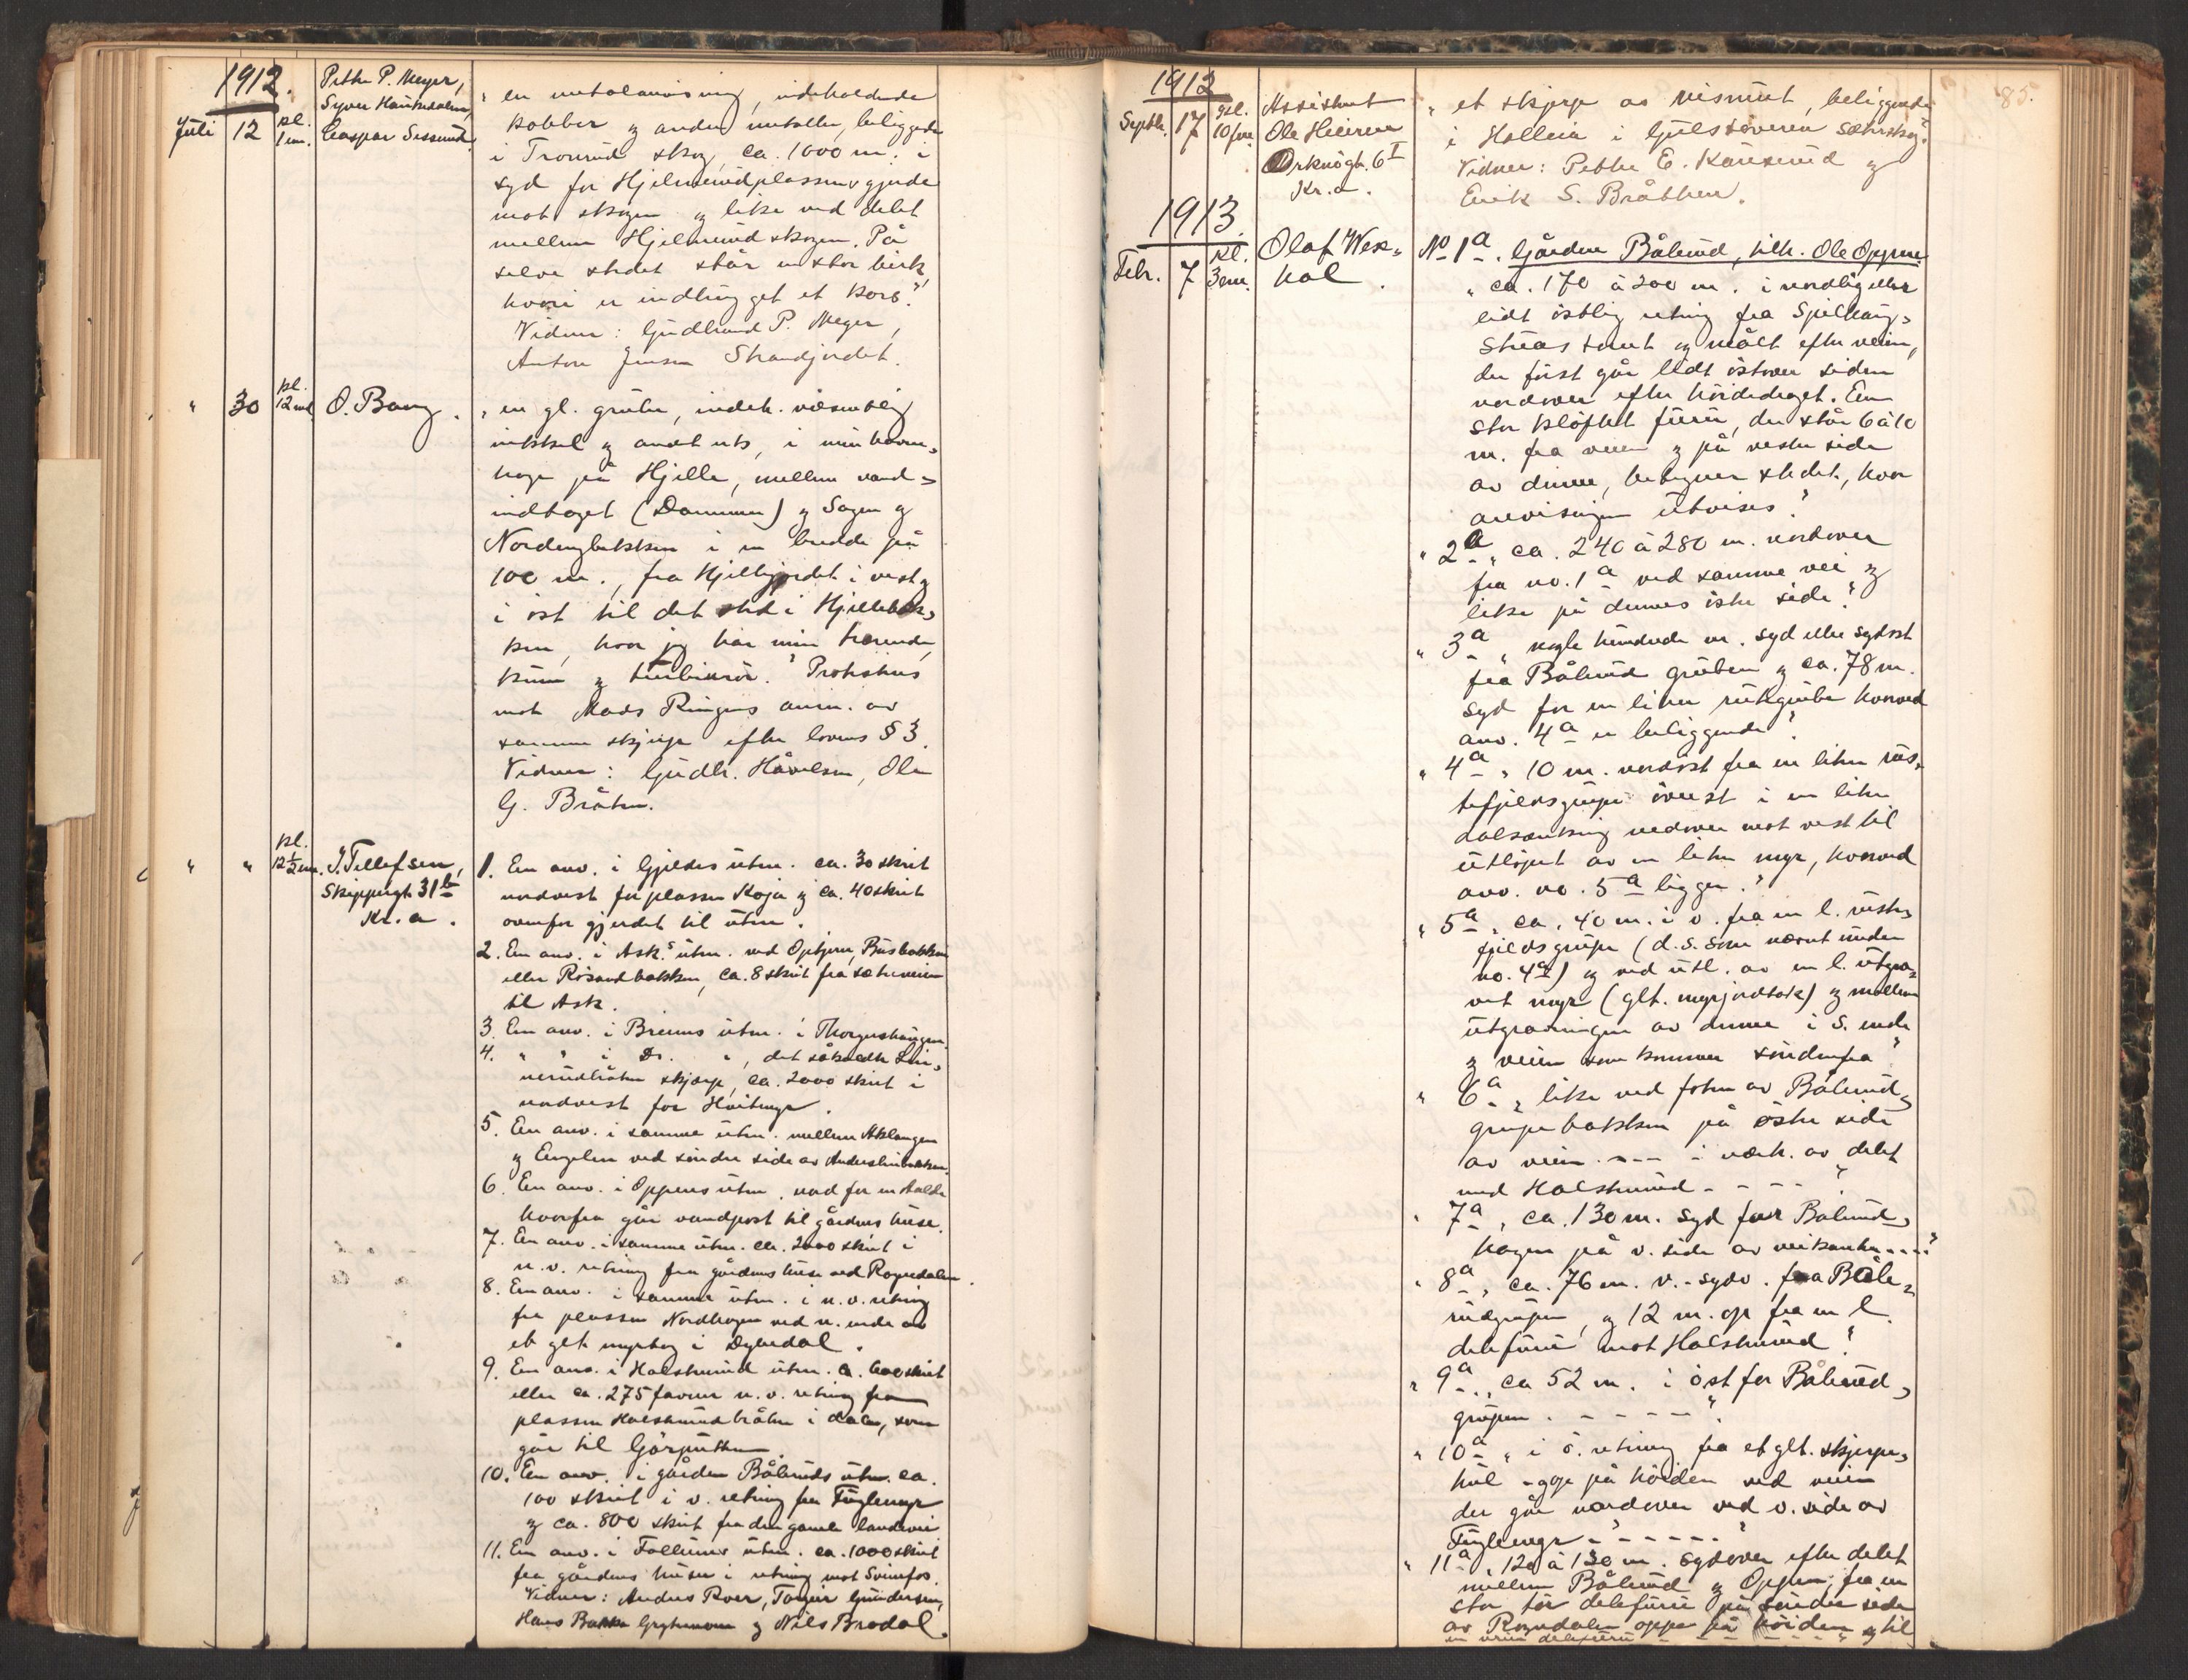 1912.
Juli 12 kl. 1 em.
Petter P. Meyer,
Syver
Caspar
„ en metalanvisning, indeholdende
kobber og andre metaller, beliggende
i Tronrud skog, ca. 1000 m. i
syd for Hjelmerudplassens gjerde
mot skogen og like ved delet
mellem Hjelmerudskogen. På
selve stedet står en stor birk,
hvori er indhugget et kors."
Vidner: Gudbrand P. Meyer,
Anton Jensen Strandjordet.
" 30 kl. 12 md. O. Bang.
„ en gl. grube, indeh. væsentlig
nikkel og andet erts, i min havne-
hage på Hjelle, mellem vand-
indtaget (Dammen) og Sagen og
Nordengbækken i en bredde på
100 m., fra Hjellejordet i vest og
i øst til det sted i Hjellebæk-
ken, hvor jeg har min
og turbinrør." Protesteres
mot Mads Ringens anm. av
samme skjerp efter lovens § 3.
Vidner: Gudbr. Håvelsen, Ole
G. Bråten.
" " kl. 12½ em. J. Tellefsen,
Skippergt. 31 b
Kr.a.
1. En anv. i Gjeldes utm. ca. 30 skrit
nordvest for plassen Koja og ca. 40 skrit
ovenfor gjerdet til utm.
2. En anv. i Ask.s utm. ved Opkjern, Busbakken
eller Rösandbakken, ca. 8 skrit fra sæterveien
til Ask.
3. En anv. i Breiens utm. i
4. " " i Do. i, det såkaldte
skjærp, ca. 2000 skrit i
nordvest for Hvitmyr.
5. En anv. i samme utm. mellem Aklangen
og Engelen ved söndre side av
6. En anv. i Oppens utm. nord for en
hvorfra går vandpost til gårdens huse.
7. En anv. i samme utm. ca. 2000 skrit i
n.v. retning fra gårdens huse ved Rognedalen.
8. En anv. i samme utm. i n.v. retning
fra plassen Nordhagen ved n. ende av
et glt. myrtag i Dybedal.
9. En anv. i Halstenrud utm. ca. 600 skrit
eller ca. 275 favner n.v. retning fra
plassen Halstenrudbråten i dalen, som
går til Görputten.
10. En anv. i gården Bålruds utm. ca.
100 skrit i v. retning fra Fuglemyr
og ca. 800 skrit fra den gamle landevei
11. En anv. i Follums utm. ca. 1000 skrit
fra gårdens huser i retning mot Svinefos.
Vidner: Anders Roer, Torgeir Gundersen,
Hans Bakke og Nils Brodal.
85.
1912
Septbr. 17 kl. 10 fm.
Assistent
Ole Heieren
Orknögt. 6 I
Kr.a.
„ et skjerp av vismut, beliggende
i Holleia i Gulsteveren sæterskog."
Vidner: Petter E. Kåserud og
Erik S. Bråthen.
1913.
Febr. 7 kl. 3 em.
Olaf Wex-
hal.
No 1a. Gården Bålerud, tilh. Ole Oppen.
„ ca. 170 à 200 m. i nordlig eller
lidt östlig retning fra Spelhaug-
stuas tomt og målt efter veien,
der först går lidt östover siden
nordover efter höidedraget. En
stor klöftet furu, der står 6 à 10
m. fra veien og på vestre side
av denne, betegner stedet, hvor
anvisningen utvises."
" 2a „ ca. 240 à 280 m. nordover
fra no. 1a ved samme vei og
like på dennes östre side."
" 3a „ nogle hundrede m. syd eller sydöst
fra Bålerud gruben og ca. 78 m.
syd for en liten rustgrube hvorved
anv. 4a er beliggende."
" 4a „ 10 m. nordöst fra en liten rus-
tefjeldsgrube överst i en liten
dalsænkning nedover mot vest til
utlöpet av en liten myr, hvorved
anv. no. 5a ligger."
" 5a „ ca. 40 m. i v. fra en l. rust-
fjeldsgrube (d. s. som nævnt under
no. 4a) og ved utl. av en l. utgra-
vet myr (glt. myrjordtak) og mellem
utgravningen av denne i S. ende
og veien som kommer söndenfra"
" 6a „ like ved foten av Bålerud-
grubebakken på östre side
av veien - - - i nærh. av delet
med Halstenrud - - - - "
" 7a „ ca. 130 m. syd for Bålerud-
hagen på v. side av veikanten - - - "
" 8a „ ca. 76 m. v.-sydv. fra Båle-
rudgruben, og 12 m. op fra en l.
delefuru mot Halstenrud."
" 9a „ ca 52 m. i öst for Bålerud-
gruben. - - - - - "
" 10a „ i ö. retning fra et glt. skjerpe-
hul - oppe på höiden ved veien
der går nordover ved v. side av
Fuglemyr - - - - - - "
" 11a „ 120 à 130 m. sydover efter delet
mellem Bålerud og Oppen, fra en
stor tör delefuru på söndre side
av Rognedalen oppe på höiden og til
en delefuru - - - - - - "